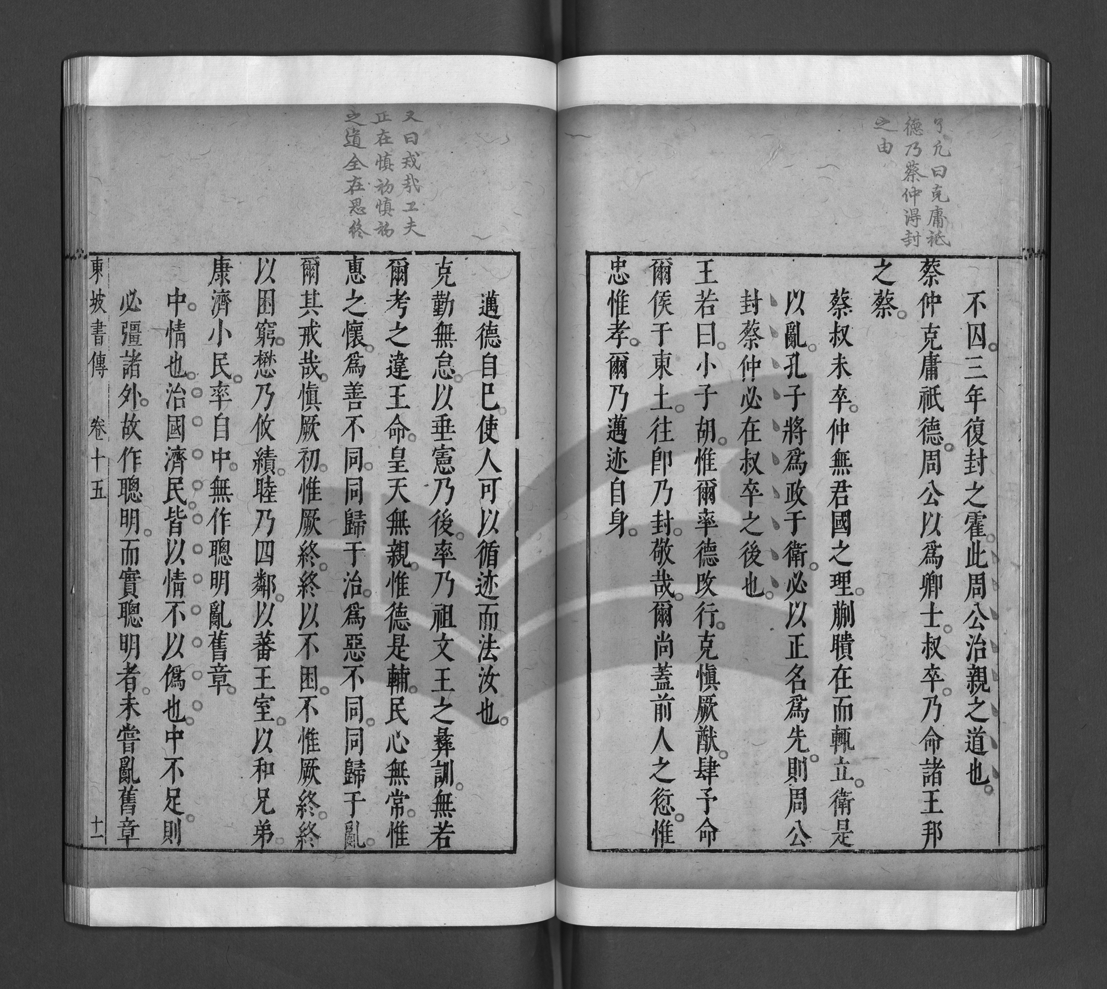 德乃蔡仲得封
之由
不囚三年復封之霍此周公治親之道也
蔡仲克庸祇德周公以爲卿士叔卒乃命諸王邦
之蔡
蔡叔未卒仲無君國之理蒯聵在而輒立衛是
以亂孔子將爲政于衛必以正名爲先則周公
封蔡仲必在叔卒之後也
王若曰小子胡惟爾率德改行克愼厥猷肆予命
爾侯于東土往卽乃封敬哉爾尚蓋前人之愆惟
忠惟孝爾乃邁迹自身
又曰戒哉工夫
正在慎初慎初
之道全在思終
邁德自已使人可以循迹而法汝也
克勤無怠以垂憲乃後率乃祖文王之彝訓無若
爾考之違王命皇天無親惟德是輔民心無常惟
惠之懷爲善不同同歸于治爲惡不同同歸于亂
爾其戒哉愼厥初惟厥終終以不困不惟厥終終
以困窮懋乃攸績睦乃四鄰以蕃王室以和兄弟
康濟小民率自中無作聰明亂舊章
中情也治國濟民皆以情不以僞也中不足則
必彊諸外故作聰明而實聰明者未嘗亂舊章
東坡書傳 卷十五 十一